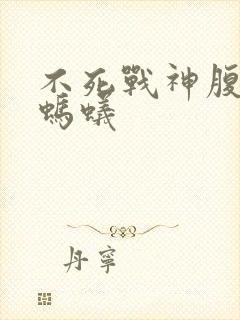 不死戰神腹
螞蟻
丹寧